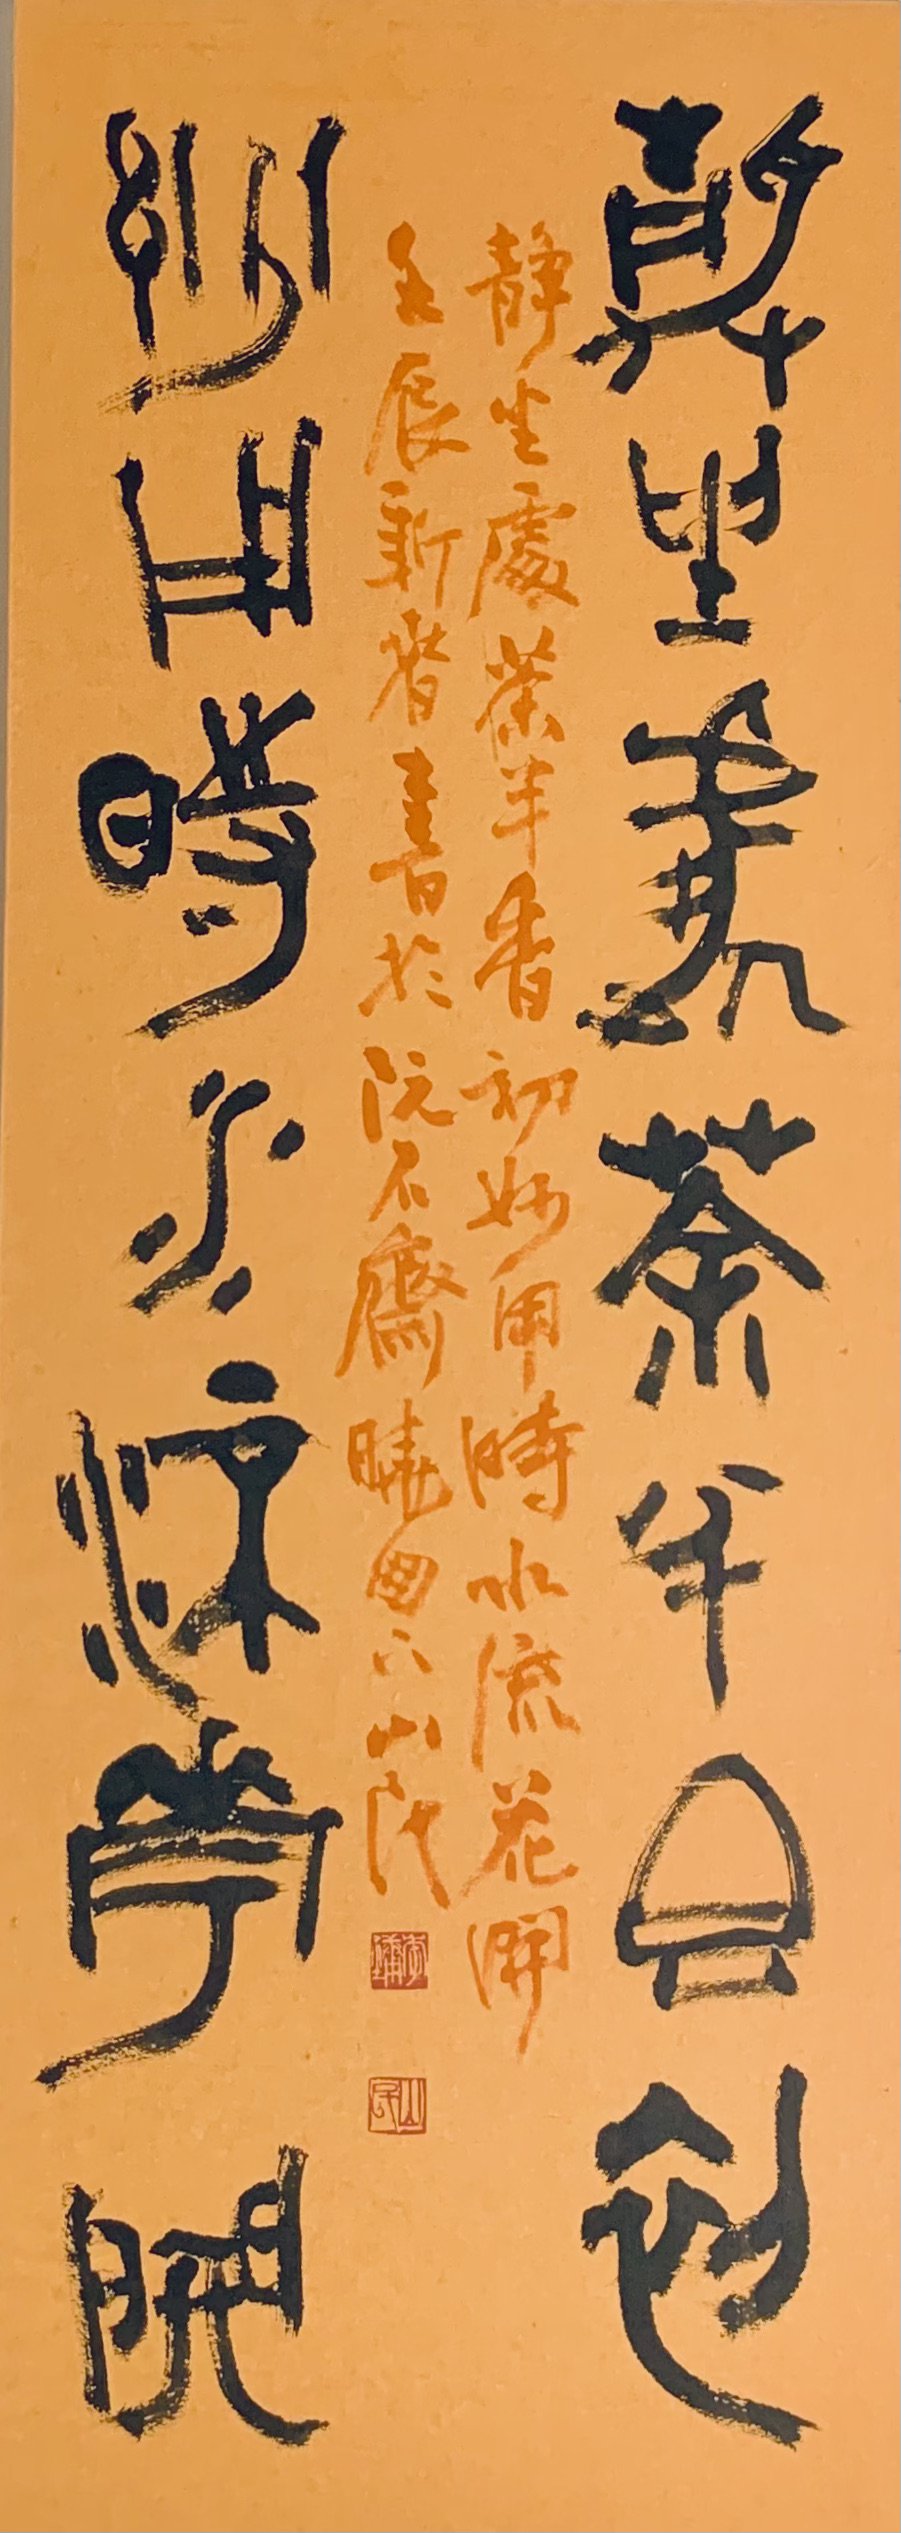 靜坐處茶半香初
妙用時水流花開
靜坐處茶半香初妙用時水流花開
壬辰新春書於阮石齋曉田六山民
山民